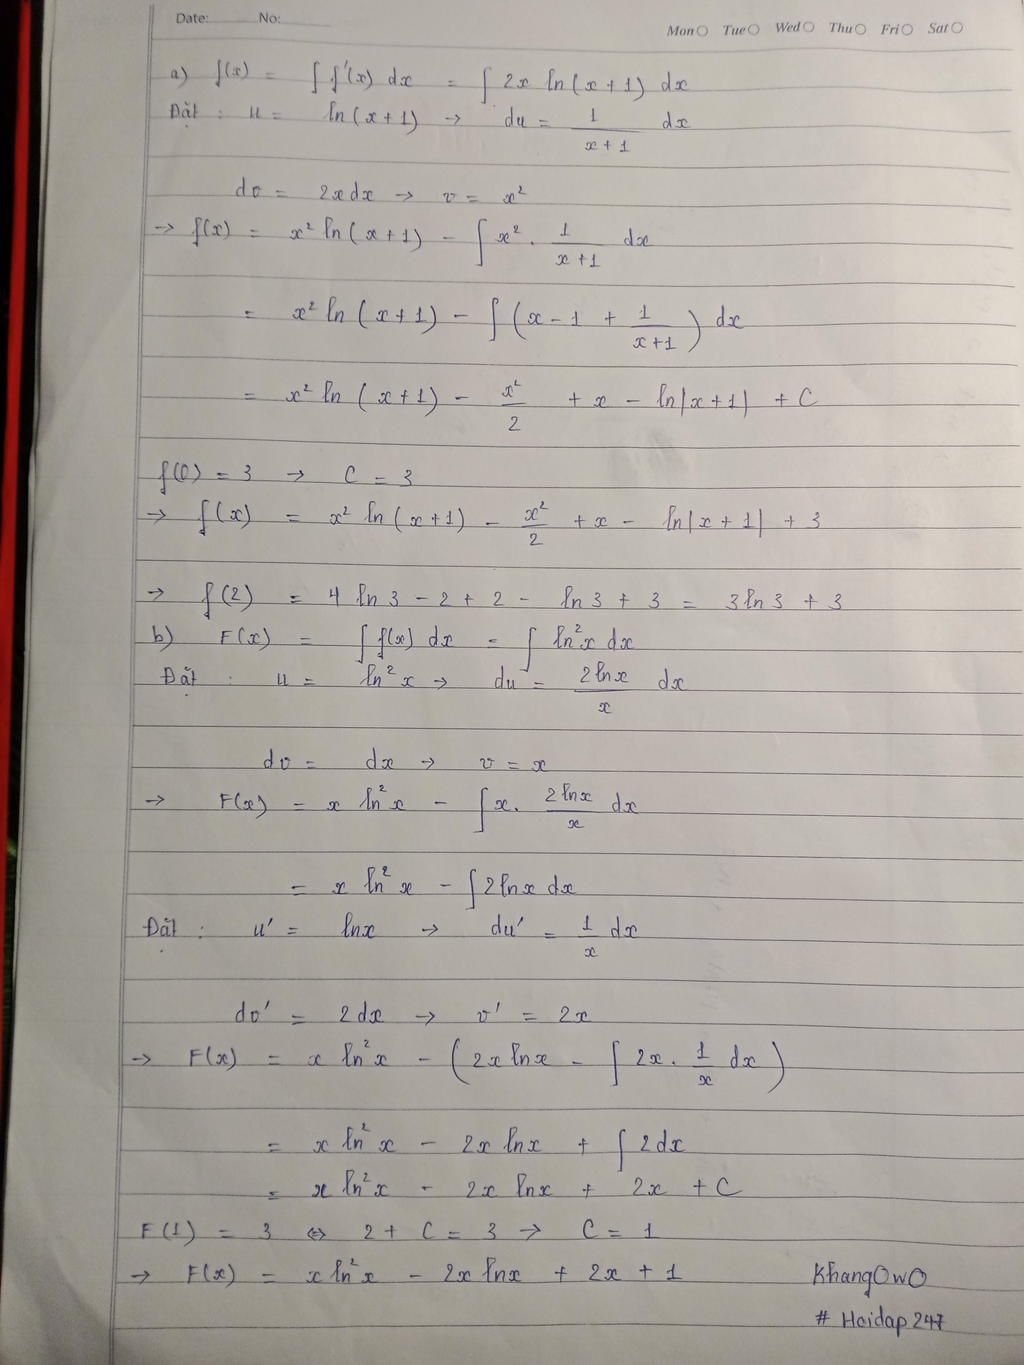 Date: No:
Mon Tue Wed Thu Fri Sat
a) f(x) = ∫ f'(x) dx = ∫ 2x ln(x+1) dx
Đặt : u = ln(x+1) → du = 1/(x+1) dx
dv = 2x dx → v = x²
→ f(x) = x² ln(x+1) - ∫ x² . 1/(x+1) dx
= x² ln(x+1) - ∫ (x - 1 + 1/(x+1)) dx
= x² ln(x+1) - x²/2 + x - ln|x+1| + C
f(0) = 3 → C = 3
→ f(x) = x² ln(x+1) - x²/2 + x - ln|x+1| + 3
→ f(2) = 4 ln3 - 2 + 2 - ln3 + 3 = 3ln3 + 3
b) F(x) = ∫ f(x) dx = ∫ ln²x dx
Đặt : u = ln²x → du = 2lnx/x dx
dv = dx → v = x
→ F(x) = x ln²x - ∫ x. 2lnx/x dx
= x ln²x - ∫ 2lnx dx
Đặt : u' = lnx → du' = 1/x dx
dv' = 2dx → v' = 2x
→ F(x) = x ln²x - (2x lnx - ∫ 2x. 1/x dx)
= x ln²x - 2x lnx + ∫ 2dx
= x ln²x - 2x lnx + 2x + C
F(1) = 3 ⇔ 2 + C = 3 → C = 1
→ F(x) = x ln²x - 2x lnx + 2x + 1
KhangOwO
# Hoidap247